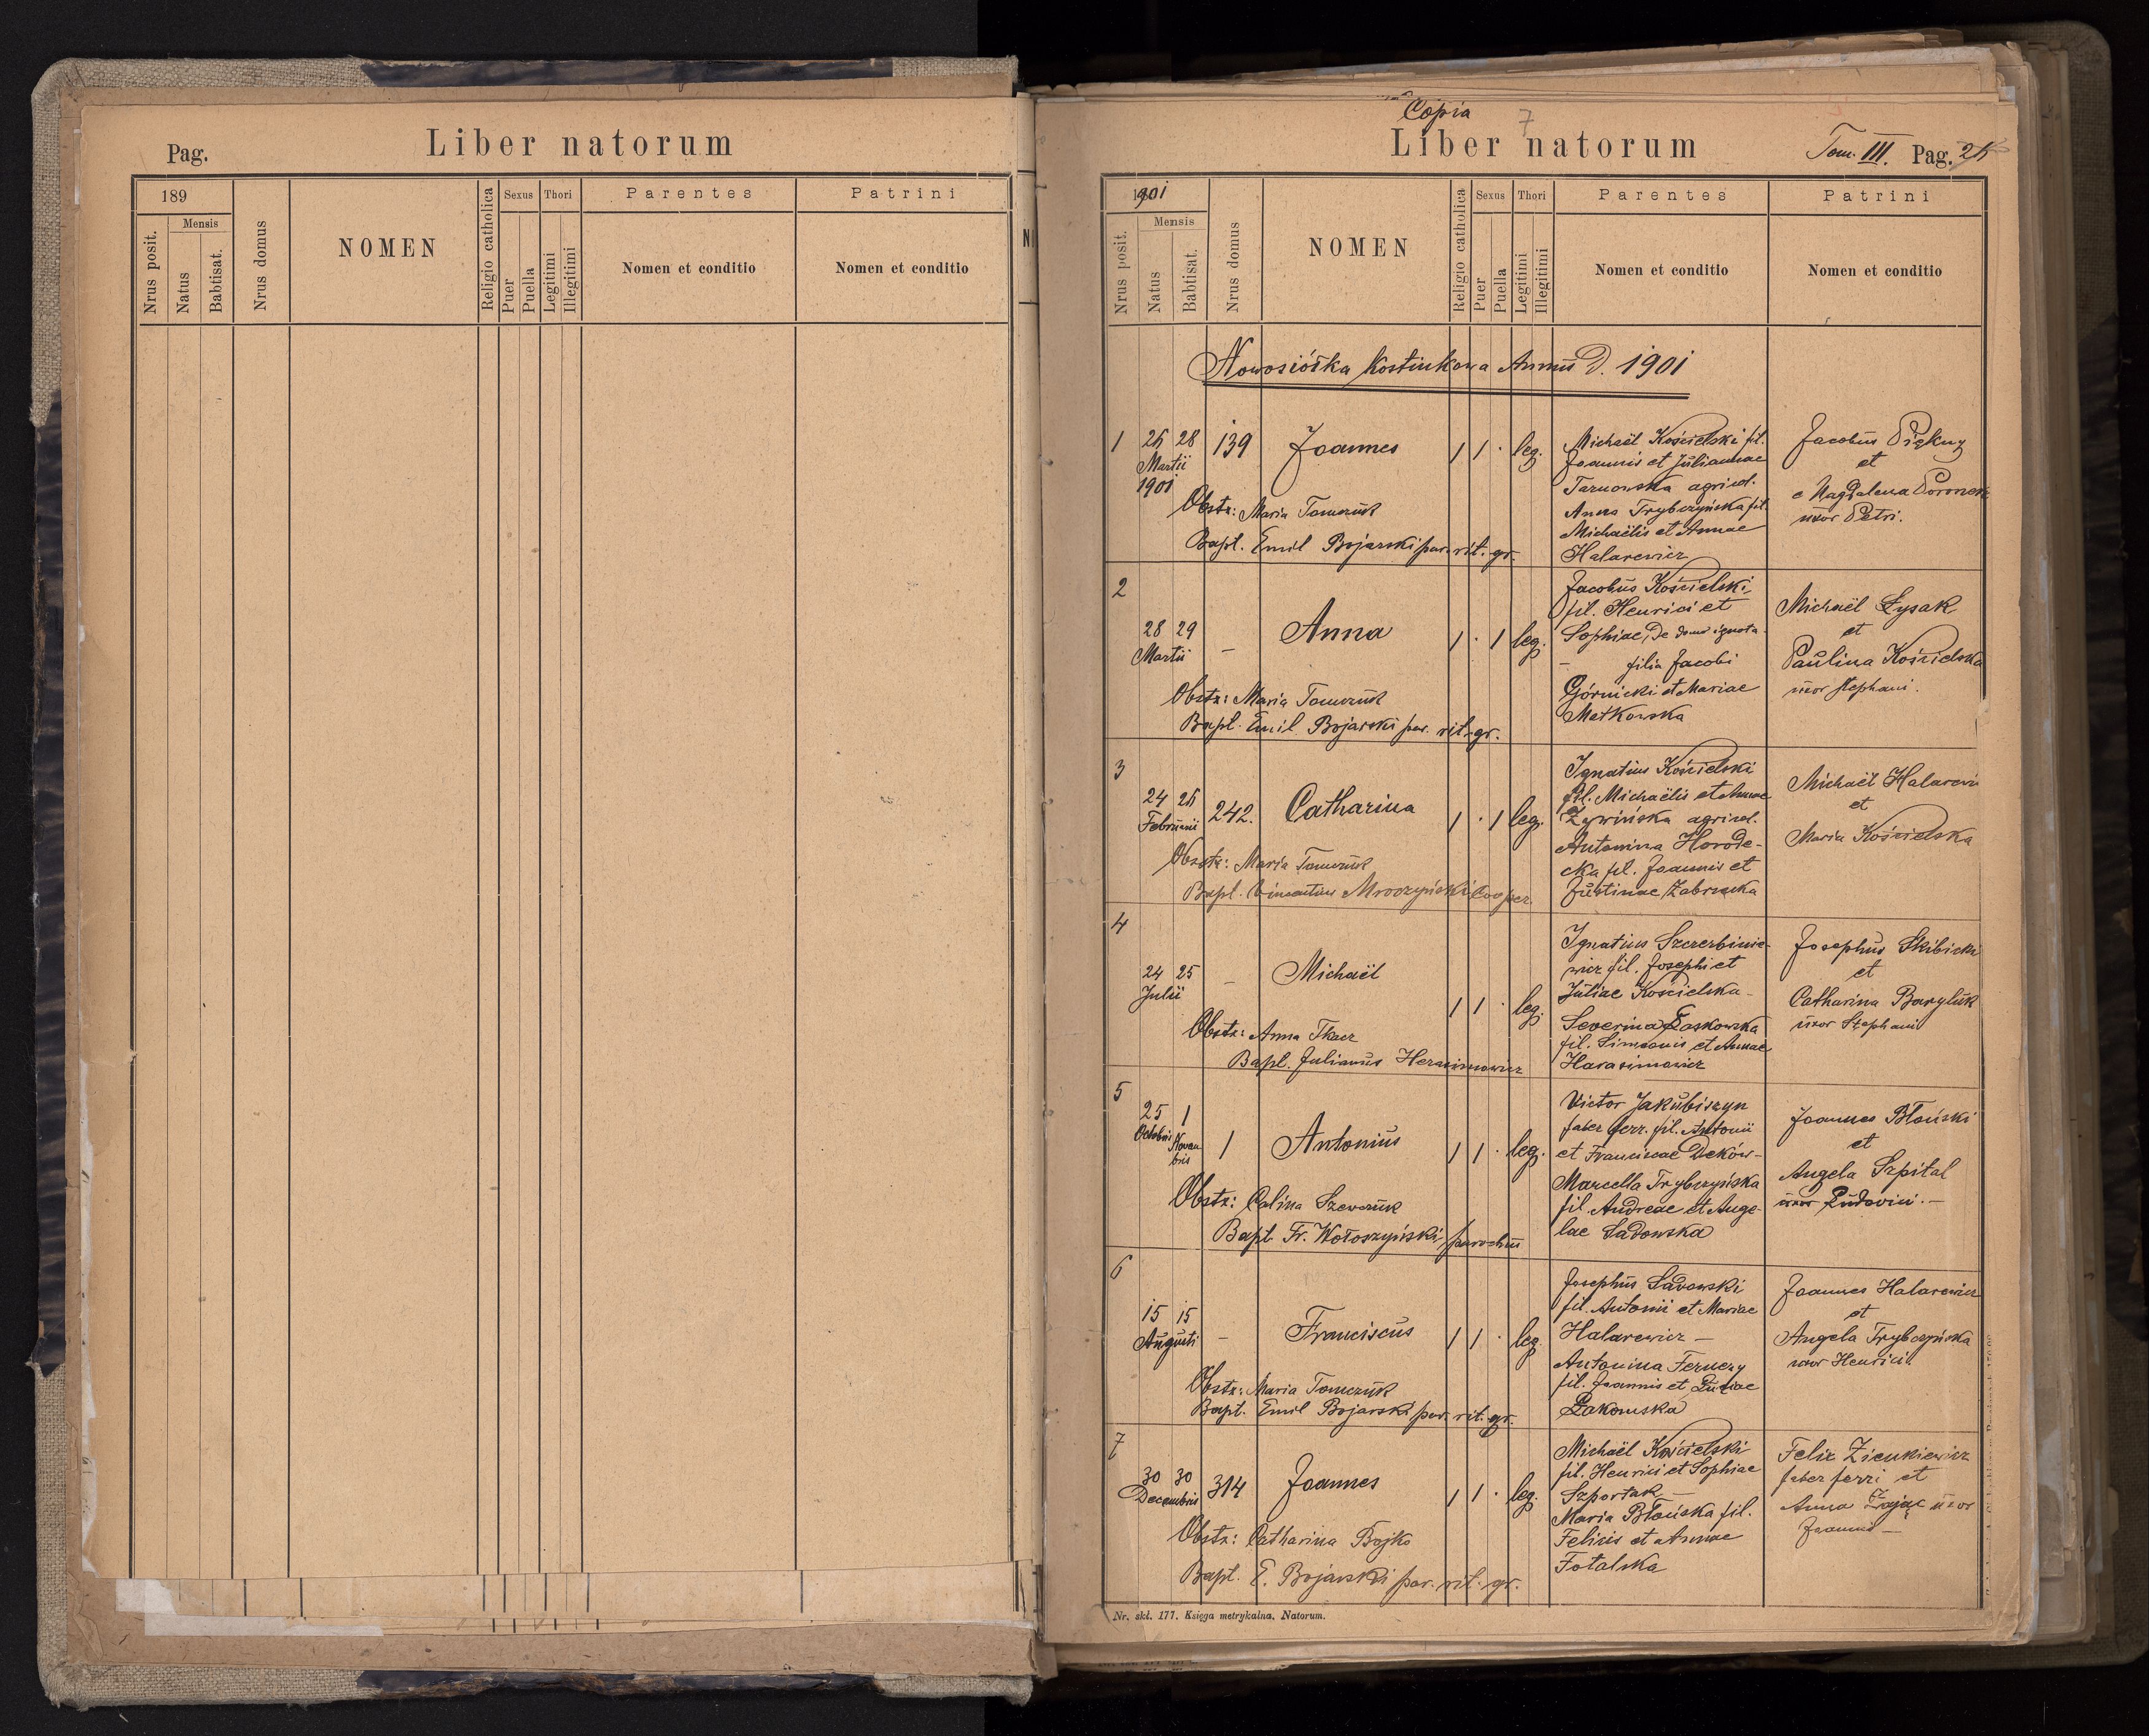 Pag.
Liber natorum
189
Nrus posit.
Mensis
Natus
Babtisat.
Nrus domus
NOMEN
Religio catholica
Sexus
Puer
Puella
Thori
Legitimi
Illegitimi
Parentes
Nomen et conditio
Patrini
Nomen et conditio
Copia
7
Liber natorum
Tom. III. Pag.
1901
Nrus posit.
Mensis
Natus
Babtisat.
Nrus domus
NOMEN
Religio catholica
Sexus
Puer
Puella
Thori
Legitimi
Illegitimi
Parentes
Nomen et conditio
Patrini
Nomen et conditio
Nowosiółka Kostiukowa Annus D. 1901
1
26 28
Martii
1901
139
Joannes
1 1 · leg.
Michaël Kościelski fil.
Joannis et Juliannae
Tarnowska agricol.
Anna Trybczyńska fil.
Michaëlis et Annae
Halarewicz
Jacobus Piękny
et
Magdalena Poronek
uxor Petri.
Obstr: Maria Tomczuk
Bapt. Emil Bojarski par. rit. gr.
2
28 29
Martii
–
Anna
1 · 1 leg.
Jacobus Kościelski
fil. Henrici et
Sophiae, de domo ignota
– filia Jacobi
Górnicki et Mariae
Matkowska
Michaël Łysak
et
Paulina Kościelska
uxor Stephani.
Obstr: Maria Tomczuk
Bapt. Emil Bojarski par. rit. gr.
3
24 26
Februarii
242.
Catharina
1 · 1 leg.
Ignatius Kościelski
fil. Michaëlis et Annae
Żywińska agricol.
Antonina Horode-
cka fil. Joannis et
Justinae Zabrzecka
Michaël Halarewi
et
Maria Kościelska
Obstr: Maria Tomczuk
Bapt. Vincentius Mroczyński Cooper.
4
24 25
Julii
–
Michaël
1 1 · leg.
Ignatius Szczerbinie-
wicz fil. Josephi et
Juliae Kościelska –
Severina Laskowska
fil. Simeonis et Annae
Harasimowicz
Josephus Skibicki
et
Catharina Baryluk
uxor Stephani
Obstr: Anna Tkacz
Bapt. Julianus Herasimowicz
5
25 1
Octobris Novem
bris
1
Antonius
1 1 · leg.
Victor Jakubiszyn
faber ferr. fil. Antonii
et Franciscae Deków –
Marcella Trybczyńska
fil. Andreae et Ange-
lae Sadowska
Joannes Błoński
et
Angela Szpital
uxor Ludovici. –
Obstr: Calina Szewczuk
Bapt. Fr. Wołoszyński, parochus
6
15 15
Augusti
–
Franciscus
1 1 · leg.
Josephus Sadowski
fil. Antonii et Mariae
Halarewicz –
Antonina Fernezy
fil. Joannis et Luciae
Łakomska
Joannes Halarewicz
et
Angela Trybczyńska
uxor Henrici
Obstr: Maria Tomczuk
Bapt. Emil Bojarski par. rit. gr.
7
30 30
Decembris
314
Joannes
1 1 · leg.
Michaël Kościelski
fil. Henrici et Sophiae
Szportak –
Maria Błońska fil.
Felicis et Annae
Fotalska
Felix Zienkiewicz
faber ferri et
Anna Zając uxor
Joannis –
Obstr: Catharina Bojko
Bapt. E. Bojarski par. rit. gr.
Nr. skł. 177. Księga metrykalna. Natorum.